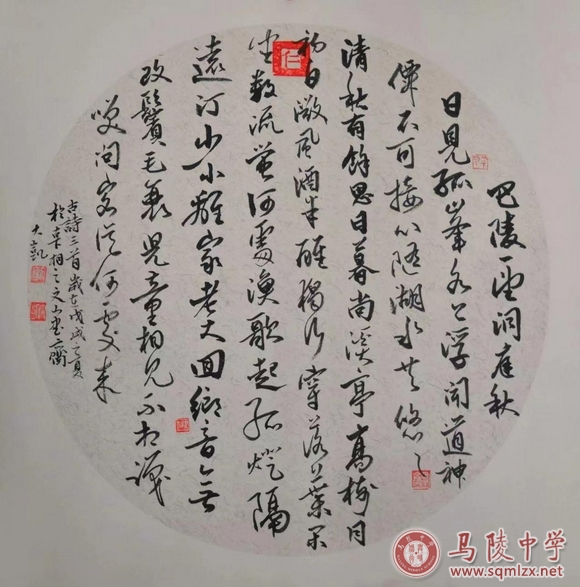 巴陵一望洞庭秋
日見孤峯水上浮聞道神
僊不可接心隨湖水共悠々
清秋有餘思日暮尚溪亭高樹月
初白微風酒半醒獨行穿落葉閑
坐數流螢何處漁歌起孤燈隔
遠汀少小離家老大回鄉音無
改鬢毛衰兒童相見不相識
笑問客從何處來
古詩三首歲在戊戌之夏
於相之文山齋
大凱
马陵中学
www.sqmlzx.net